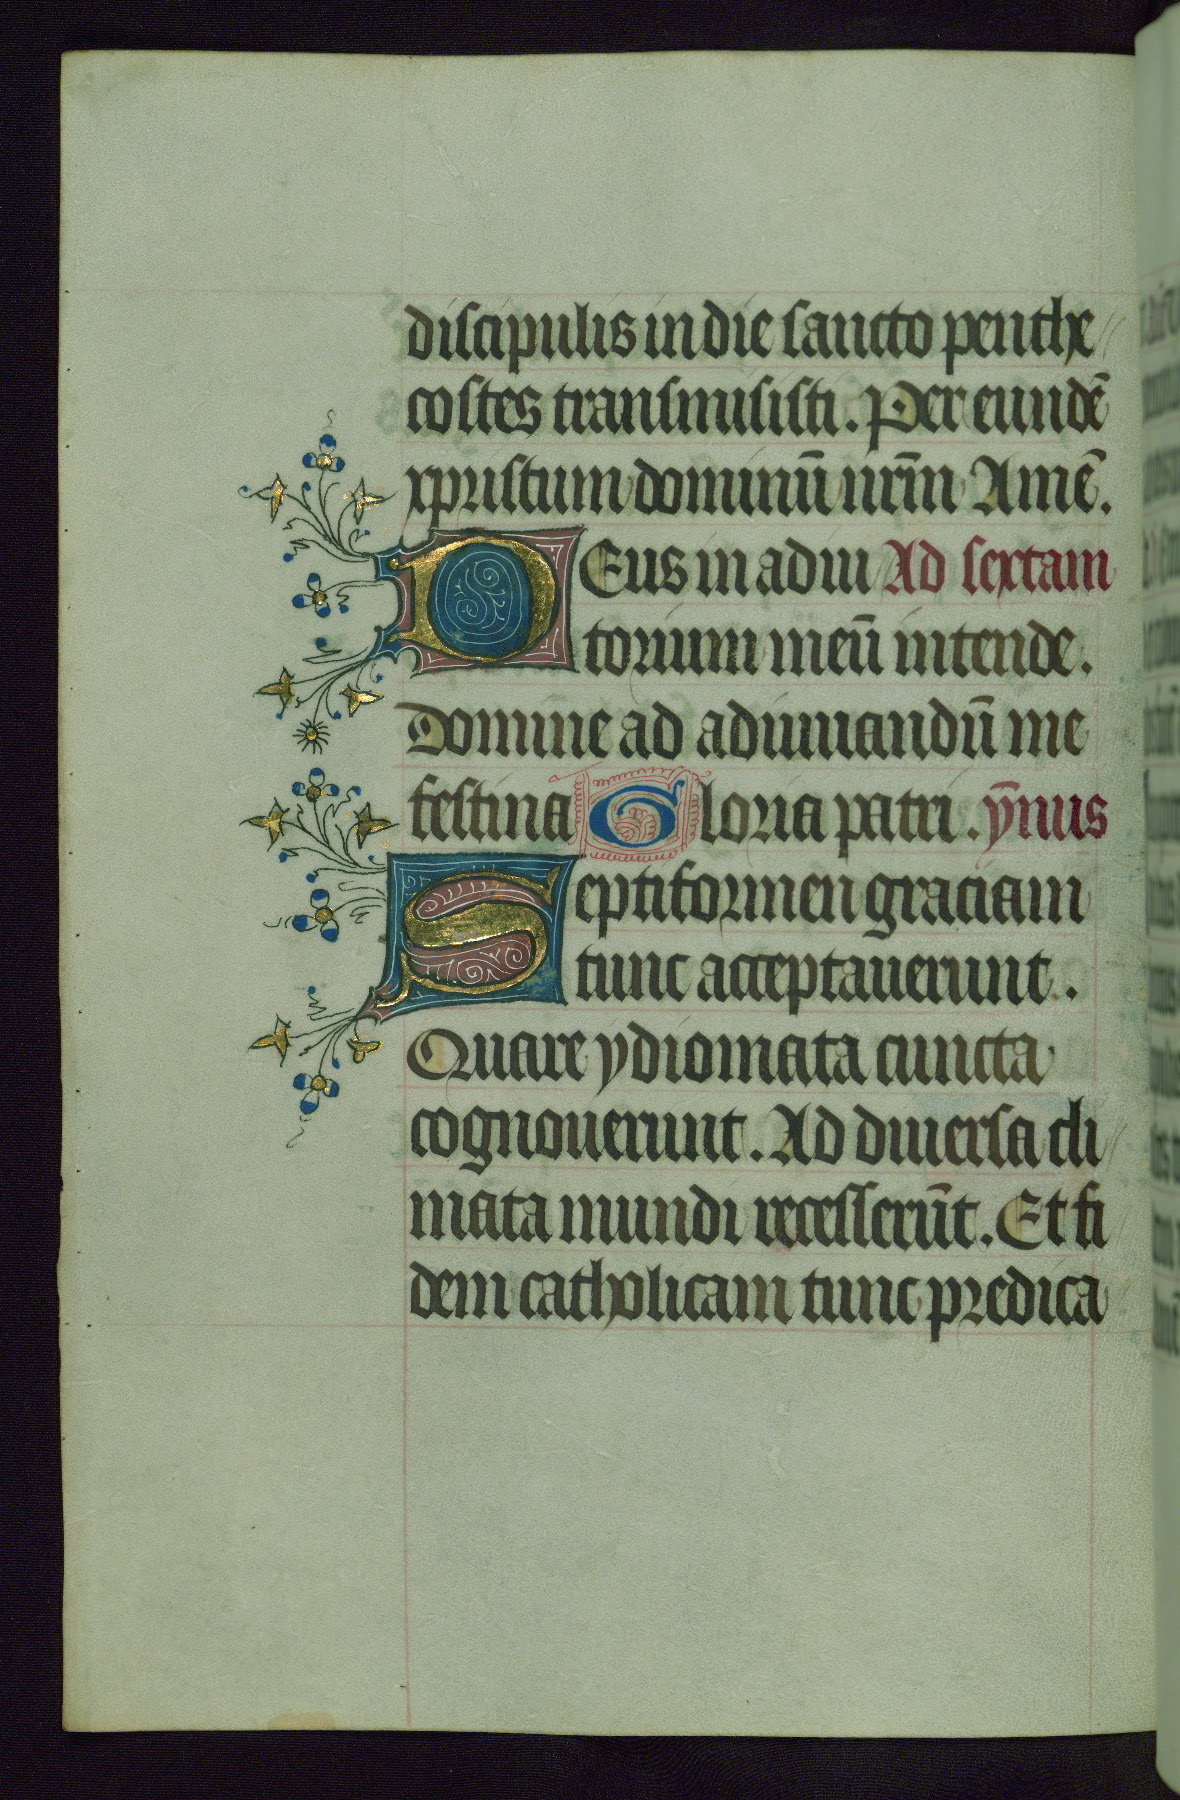 discipulis in die sancto penthe
costes transmisisti. Per eundē
xpristum dominū nr̄m Amē.
DEus in adiu Ad sextam
torium meū intende.
Domine ad adiuuandū me
festina Gloria patri. ȳnus
Septiformen graciam
tunc acceptauerunt.
Quare ydiomata cuncta
cognouerunt. Ad diuersa cli
mata mundi recesserūt. Et fi
dem catholicam tunc predica